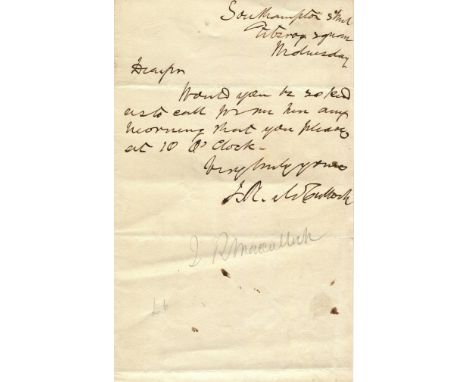 Southampton Street
Fitzroy Square
Wednesday
Dear Sir
Would you be so kind
as to call for me here any
morning that you please
at 10 O'Clock -
Very truly yours
J. R. McCulloch
J R Macculloch